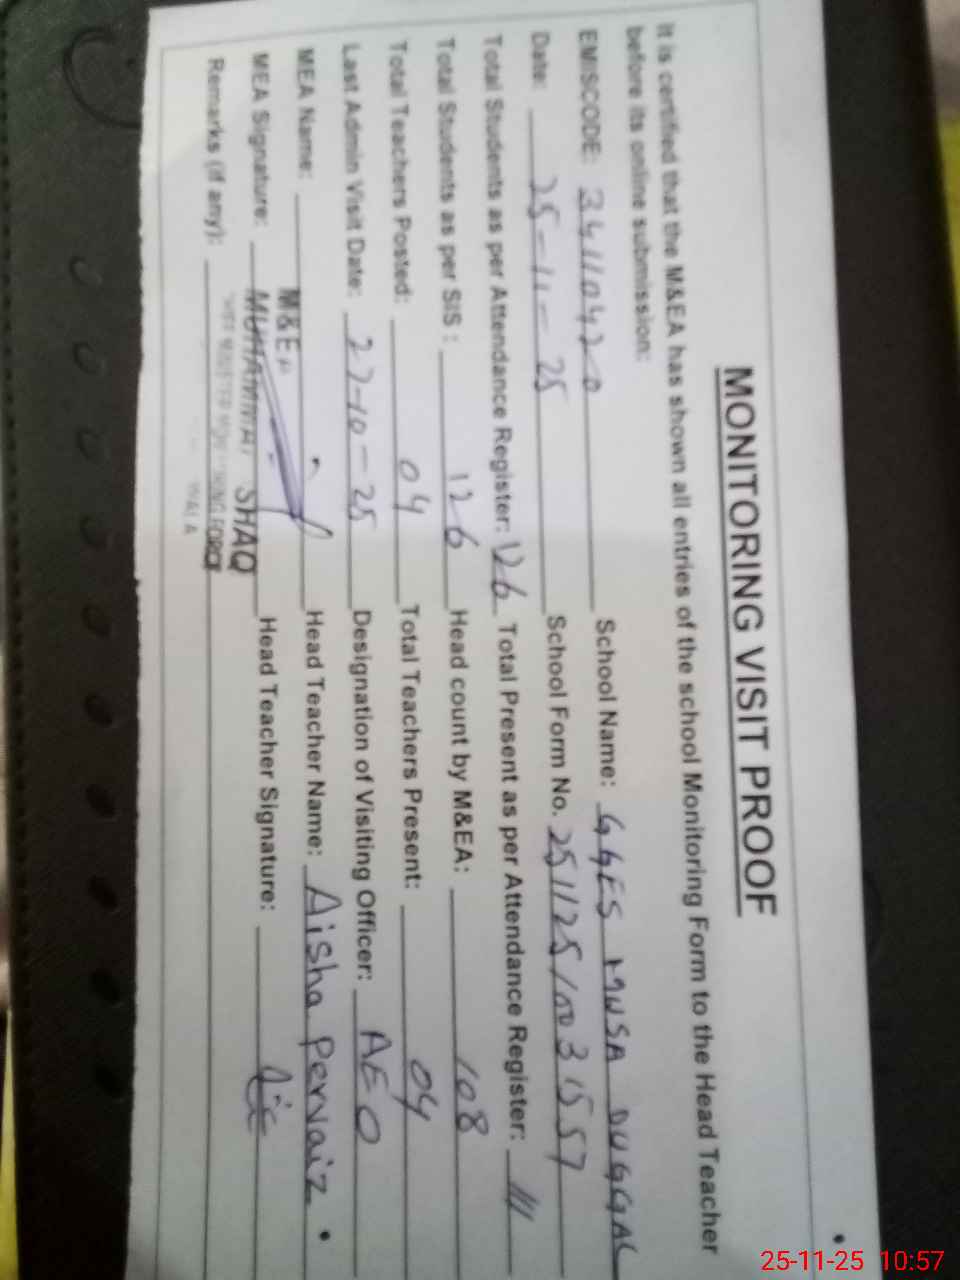 MONITORING VISIT PROOF
It is certified that the M&EA has shown all entries of the school Monitoring Form to the Head Teacher
before its online submission:
EMISCODE: 34110420 School Name: GGES MUSA DUGGAL
Date: 25-11-25 School Form No. 25112510031557
Total Students as per Attendance Register: 126 Total Present as per Attendance Register: 111
Total Students as per SIS : 126 Head count by M&EA: 108
Total Teachers Posted: 04 Total Teachers Present: 04
Last Admin Visit Date: 27-10-25 Designation of Visiting Officer: AEO
MEA Name: Head Teacher Name: Aisha Pervaiz.
M&EA
MEA Signature: MUHAMMAD SHAQ Head Teacher Signature:
Remarks (if any): FORCE
25-11-25 10:57